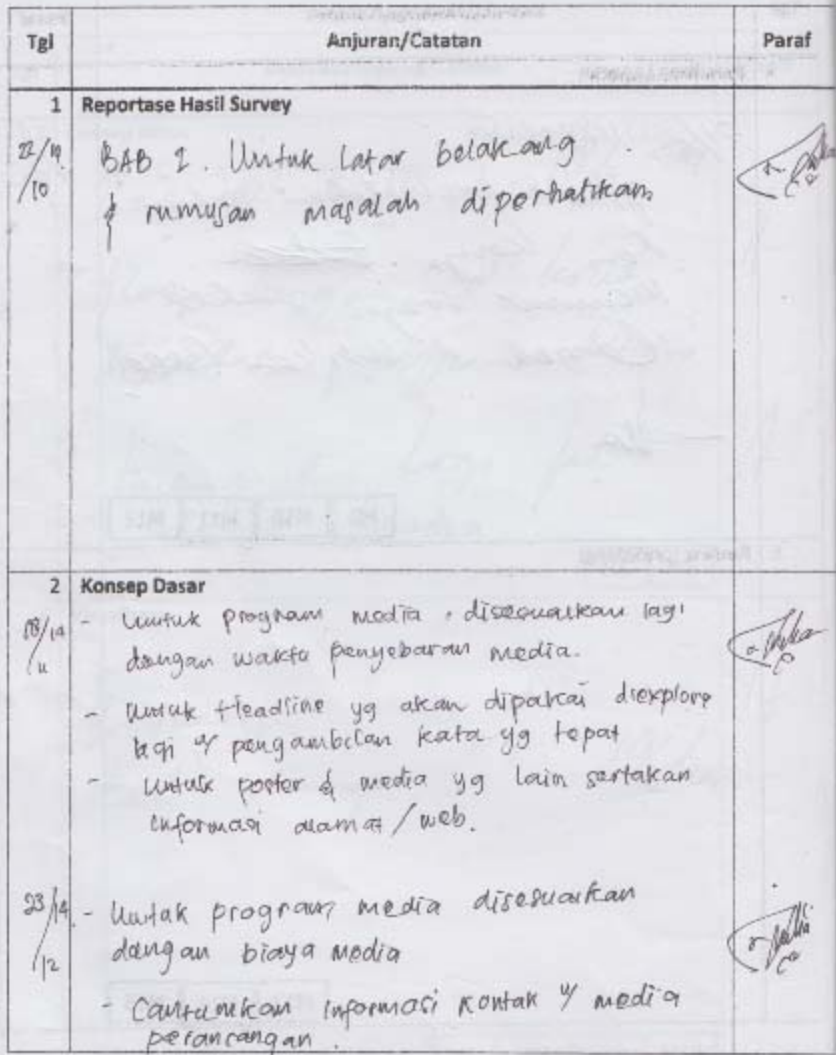 Tgl Anjuran/Catatan Paraf
1 Reportase Hasil Survey
22/14/10 BAB 1. Untuk latar belakang
& rumusan masalah diperhatikan
2 Konsep Dasar
18/14/11 - Untuk program media, disesuaikan lagi
dengan waktu penyebaran media.
- Untuk Headline yg akan dipakai diexplore
lagi u/ pengambilan kata yg tepat
- Untuk poster & media yg lain sertakan
informasi alamat/web.
23/14/12 - Untuk program media disesuaikan
dengan biaya media
- Cantumkan informasi kontak u/ media
perancangan.